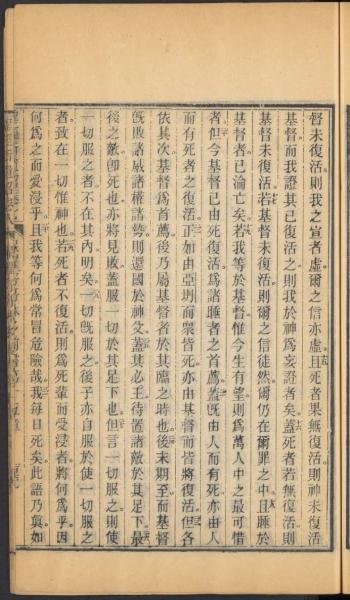 督未復活則我之宣者虛爾之信亦虛且死者果無復活則神未復活
基督而我證其已復活之則我於神爲妄證者矣蓋死者若無復活則
基督未復活若基督未復活則爾之信徒然爾仍在爾罪之中且睡於
基督者已淪亡矣若我等於基督惟今生有望則爲萬人中之最可惜
者但今基督已由死復活爲諸睡者之首薦蓋旣由人而有死亦由人
而有死者之復活正如由亞坍而衆皆死亦由基督而皆將復活但各
依其次基督爲首薦後乃屬基督者於其臨之時也後末期至而基督
旣敗諸威諸權諸勢則還國於神父蓋其必王待置諸敵於其足下最
後之敵卽死也亦將見敗蓋服一切於其足下也但言一切服之則使
一切服之者不在其內明矣一切旣服之後子亦自服於使一切服之
者致在一切惟神也若死者不復活則爲死輩而受浸者將何爲乎因
何爲之而受浸乎且我等何爲常冒危險哉我每日死矣此語乃眞如